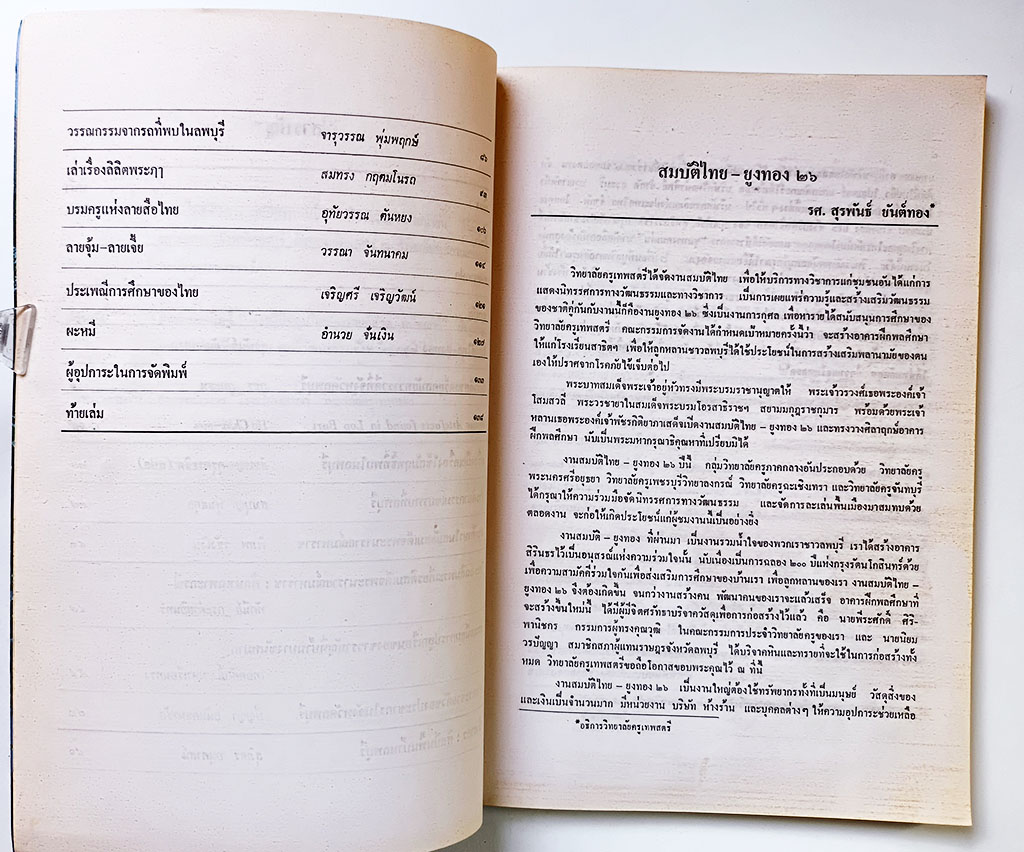 วรรณกรรมจากรถที่พบในลพบุรี จารุวรรณ พุ่มพฤกษ์ ๘๖
เล่าเรื่องลิลิตพระฦๅ สมทรง กฤตมโนรถ ๙๓
บรมครูแห่งลายสือไทย อุทัยวรรณ ตันหยง ๑๐๖
ลายจุ้ม-ลายเจี้ย วรรณา จันทนาคม ๑๑๔
ประเพณีการศึกษาของไทย เจริญศรี เจริญวัฒน์ ๑๒๑
ผะหมี อำนวย จั่นเงิน ๑๒๘
ผู้อุปการะในการจัดพิมพ์ ๑๓๓
ท้ายเล่ม ๑๓๔
สมบัติไทย – ยูงทอง ๒๖
รศ. สุรพันธ์ ยันต์ทอง*
วิทยาลัยครูเทพสตรีได้จัดงานสมบัติไทย เพื่อให้บริการทางวิชาการแก่ชุมชนอันได้แก่การ
แสดงนิทรรศการทางวัฒนธรรมและทางวิชาการ เป็นการเผยแพร่ความรู้และสร้างเสริมวัฒนธรรม
ของชาติคู่กันกับงานนี้ก็คืองานยูงทอง ๒๖ ซึ่งเป็นงานการกุศล เพื่อหารายได้สนับสนุนการศึกษาของ
วิทยาลัยครูเทพสตรี คณะกรรมการจัดงานได้กำหนดเป้าหมายครั้งนี้ว่า จะสร้างอาคารฝึกพลศึกษา
ให้แก่โรงเรียนสาธิตฯ เพื่อให้ลูกหลานชาวลพบุรีได้ใช้ประโยชน์ในการสร้างเสริมพลานามัยของตน
เองให้ปราศจากโรคภัยไข้เจ็บต่อไป
พระบาทสมเด็จพระเจ้าอยู่หัวทรงมีพระบรมราชานุญาตให้ พระเจ้าวรวงศ์เธอพระองค์เจ้า
โสมสวลี พระวรชายาในสมเด็จพระบรมโอรสาธิราชฯ สยามมกุฎราชกุมาร พร้อมด้วยพระเจ้า
หลานเธอพระองค์เจ้าพัชรกิติยาภาเสด็จเปิดงานสมบัติไทย – ยูงทอง ๒๖ และทรงวางศิลาฤกษ์อาคาร
ฝึกพลศึกษา นับเป็นพระมหากรุณาธิคุณหาที่เปรียบมิได้
งานสมบัติไทย – ยูงทอง ๒๖ ปีนี้ กลุ่มวิทยาลัยครูภาคกลางอันประกอบด้วย วิทยาลัยครู
พระนครศรีอยุธยา วิทยาลัยครูเพชรบุรีวิทยาลงกรณ์ วิทยาลัยครูฉะเชิงเทรา และวิทยาลัยครูจันทบุรี
ได้กรุณาให้ความร่วมมือจัดนิทรรศการทางวัฒนธรรม และจัดการละเล่นพื้นเมืองมาสมทบด้วย
ตลอดงาน จะก่อให้เกิดประโยชน์แก่ผู้ชมงานนี้เป็นอย่างยิ่ง
งานสมบัติ – ยูงทอง ที่ผ่านมา เป็นงานรวมน้ำใจของพวกเราชาวลพบุรี เราได้สร้างอาคาร
สิรินธรไว้เป็นอนุสรณ์แห่งความร่วมใจนั้น นับเนื่องเป็นการฉลอง ๒๐๐ ปีแห่งกรุงรัตนโกสินทร์ด้วย
เพื่อความสามัคคีร่วมใจกันเพื่อส่งเสริมการศึกษาของบ้านเรา เพื่อลูกหลานของเรา งานสมบัติไทย –
ยูงทอง ๒๖ จึงต้องเกิดขึ้น จนกว่างานสร้างคน พัฒนาคนของเราจะแล้วเสร็จ อาคารฝึกพลศึกษาที่
จะสร้างขึ้นใหม่นี้ ได้มีผู้มีจิตศรัทธาบริจาควัสดุเพื่อการก่อสร้างไว้แล้ว คือ นายพีระศักดิ์ ศิริ-
พานิชกร กรรมการผู้ทรงคุณวุฒิ ในคณะกรรมการประจำวิทยาลัยครูของเรา และ นายนิยม
วรปัญญา สมาชิกสภาผู้แทนราษฎรจังหวัดลพบุรี ได้บริจาคหินและทรายที่จะใช้ในการก่อสร้างทั้ง
หมด วิทยาลัยครูเทพสตรีขอถือโอกาสขอบพระคุณไว้ ณ ที่นี้
งานสมบัติไทย – ยูงทอง ๒๖ เป็นงานใหญ่ต้องใช้ทรัพยากรทั้งที่เป็นมนุษย์ วัสดุสิ่งของ
และเงินเป็นจำนวนมาก มีหน่วยงาน บริษัท ห้างร้าน และบุคคลต่างๆ ให้ความอุปการะช่วยเหลือ
*อธิการวิทยาลัยครูเทพสตรี